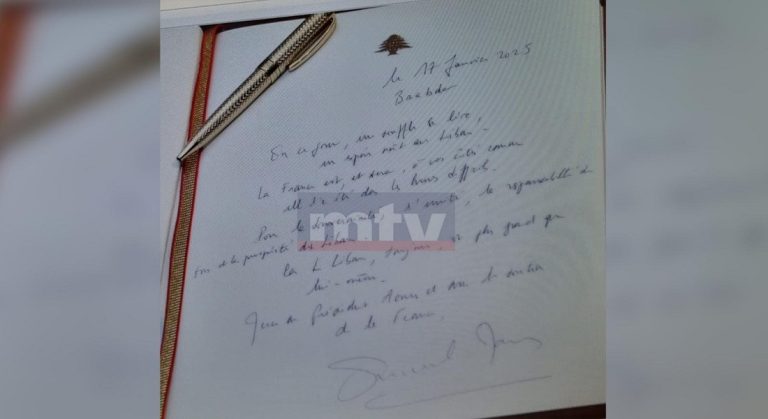 le 17 Janvier 2025
Baabda
En ce jour, un souffle se lève,
un espoir naît au Liban.
La France est, et sera, à vos côtés comme
elle l'a été dans les temps difficiles.
Pour la souveraineté, l'unité, la responsabilité de
et la prospérité du Liban.
Car le Liban, toujours, est plus grand que
lui-même.
Président Aoun et avec le soutien
de la France,
mtv